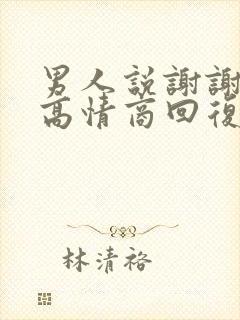 男人說謝謝
高情商回復
林清裕